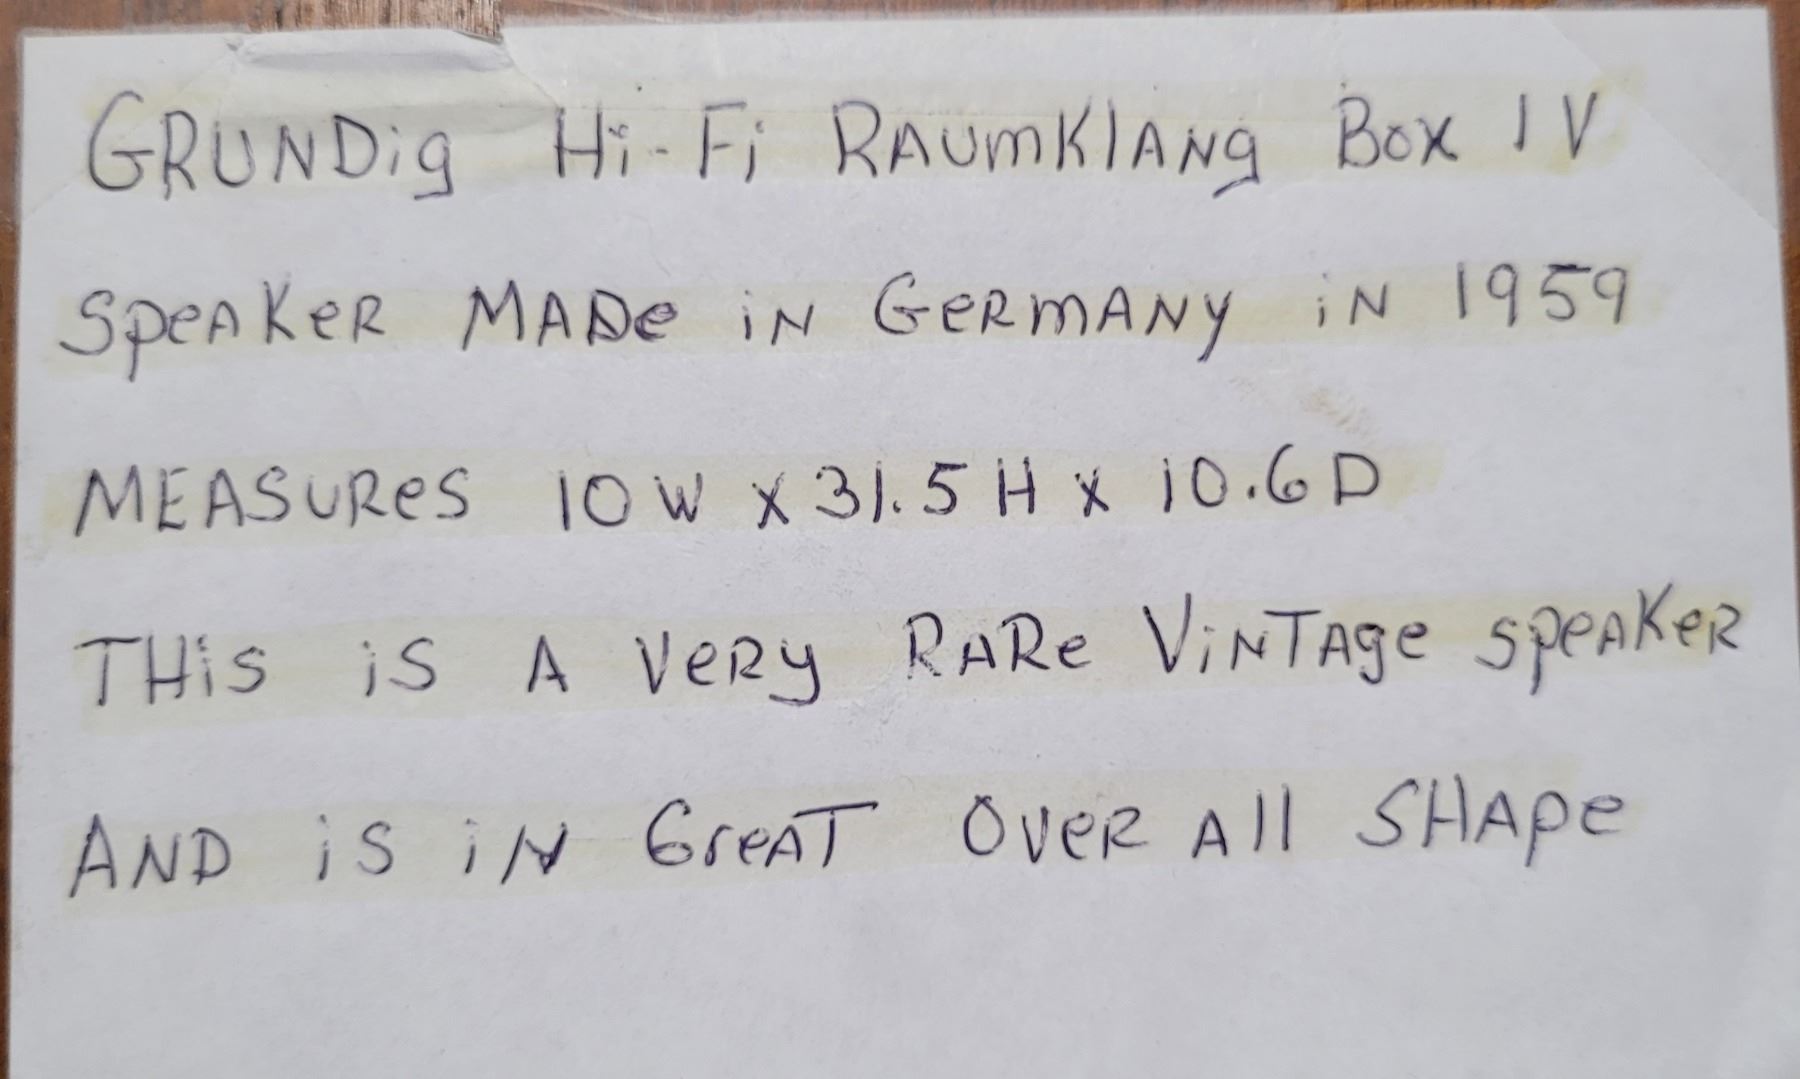 GRUNDig Hi-Fi RAUmKlANg Box IV
SpeAKeR MADe iN GeRmANy iN 1959
MEASUReS 10 W x 31.5 H x 10.6 D
THiS iS A VeRy RARe ViNTAge SpeAKeR
AND iS iN GreAT OVeR All SHApe